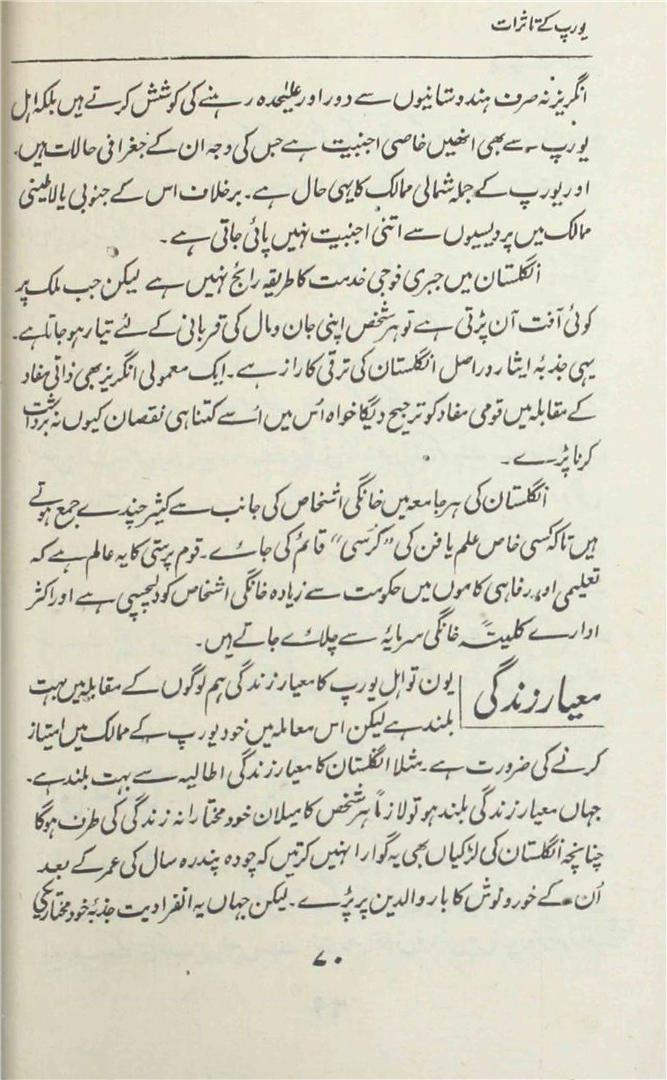 یورپ کے تاثرات
انگریز نہ صرف ہندوستانیوں سے دور اور علیٰحدہ رہنے کی کوشش کرتے ہیں بلکہ اہل
یورپ سے بھی انھیں خاصی اجنبیت ہے جس کی وجہ ان کے جغرافی حالات ہیں۔
اور یورپ کے جملہ شمالی ممالک کا یہی حال ہے۔ برخلاف اس کے جنوبی یا لاطینی
ممالک میں پردیسیوں سے اتنی اجنبیت نہیں پائی جاتی ہے۔
انگلستان میں جبری فوجی خدمت کا طریقہ رائج نہیں ہے لیکن جب ملک پر
کوئی آفت آن پڑتی ہے تو ہر شخص اپنی جان و مال کی قربانی کے لئے تیار ہو جاتا ہے۔
یہی جذبۂ ایثار دراصل انگلستان کی ترقی کا راز ہے۔ ایک معمولی انگریز بھی ذاتی مفاد
کے مقابلہ میں قومی مفاد کو ترجیح دیگا خواہ اُس میں اُسے کتنا ہی نقصان کیوں نہ برداشت
کرنا پڑے۔
انگلستان کی ہر جامعہ میں خانگی اشخاص کی جانب سے کثیر چندے جمع ہوتے
ہیں تاکہ کسی خاص علم یا فن کی ”کُرسی“ قائم کی جائے۔ قوم پرستی کا یہ عالم ہے کہ
تعلیمی اور رفاہی کاموں میں حکومت سے زیادہ خانگی اشخاص کو دلچسپی ہے اور اکثر
ادارے کلیتہً خانگی سرمایہ سے چلائے جاتے ہیں۔
معیار زندگی
یوں تو اہل یورپ کا معیار زندگی ہم لوگوں کے مقابلہ میں بہت
بلند ہے لیکن اس معاملہ میں خود یورپ کے ممالک میں امتیاز
کرنے کی ضرورت ہے۔ مثلاً انگلستان کا معیار زندگی اطالیہ سے بہت بلند ہے۔
جہاں معیار زندگی بلند ہو تو لازماً ہر شخص کا میلان خود مختارانہ زندگی کی طرف ہوگا
چنانچہ انگلستان کی لڑکیاں بھی یہ گوارا نہیں کرتیں کہ چودہ پندرہ سال کی عمر کے بعد
اُن کے خور و نوش کا بار والدین پر پڑے۔ لیکن جہاں یہ انفرادیت جذبۂ خود مختاری کی
۷۰